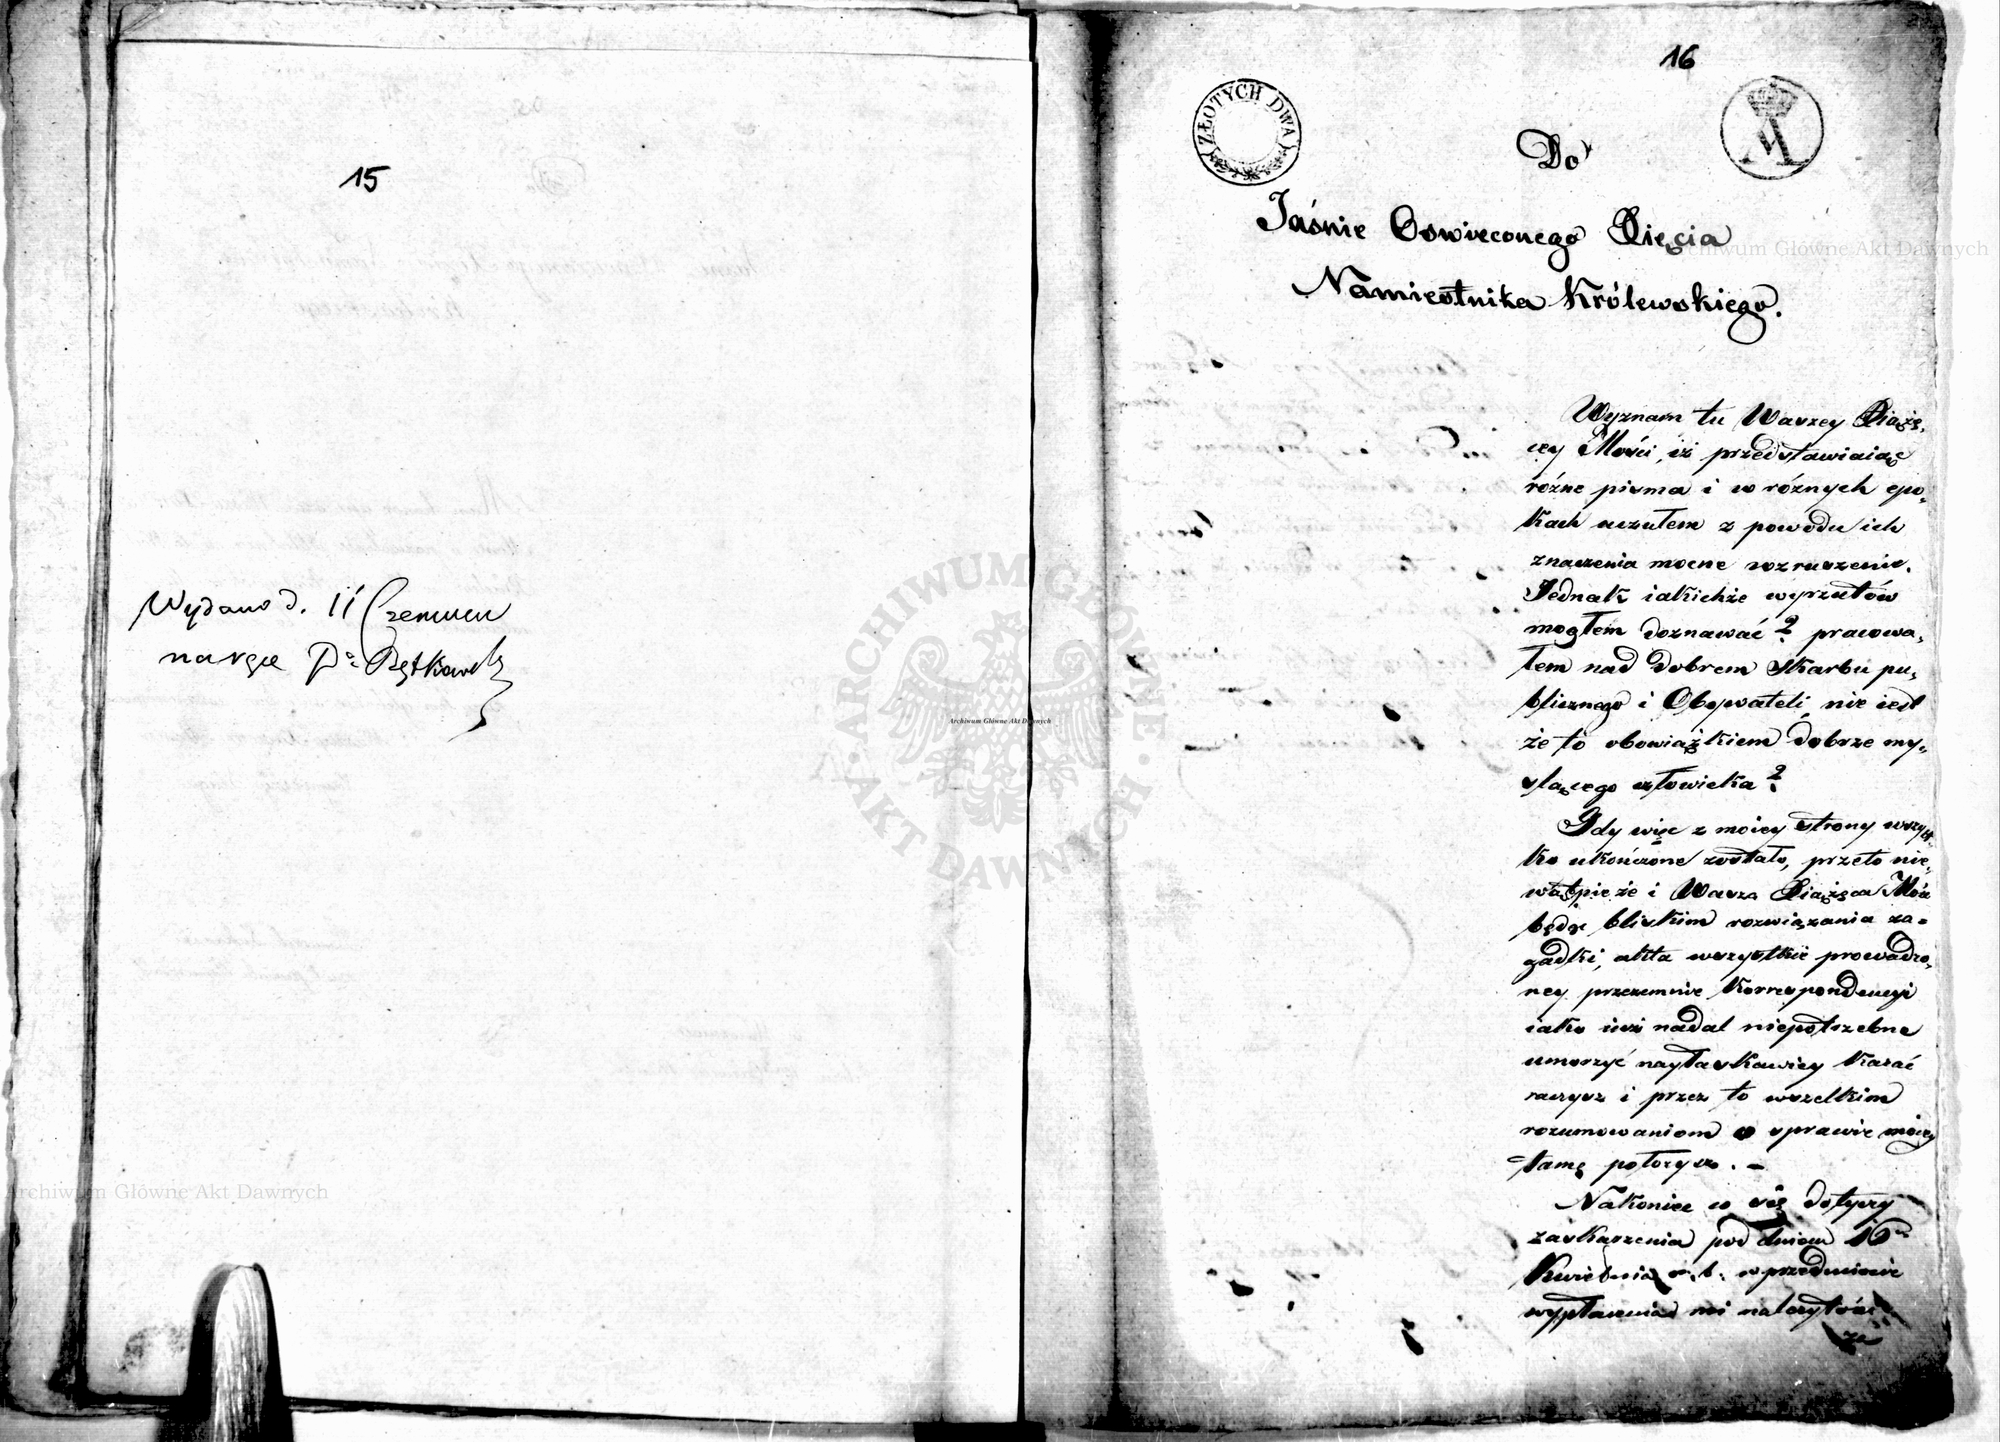 15
Wydano d. 11 Czerwca
na ręce Pa Pętkowsk
16
ZŁOTYCH DWA
Do
Jaśnie Oswieconego Xięcia
Namiestnika Królewskiego.
Wyznam tu Waszey Xiążę,
cey Mości, iż przedstawiaiąc
rożne pisma i w różnych epo,
kach uczułem z powodu ich
znaczenia mocne wzruszenie.
Jednak iakichże wyrzutów
mogłem doznawać? pracowa,
łem nad dobrem Skarbu pu,
blicznego i Obywateli, nie iest
że to obowiązkiem dobrze my,
slącego człowieka?
Gdy więc z moiey strony wszyst,
ko ukończone zostało, przeto nie,
wątpię że i Wasza Xiążęca Mość
będąc bliskim rozwiązania za=
gadki, akta wszystkie prowadzo,
ney przezemnie Korrespondencyi
iako iuż nadal niepotrzebne
umorzyć nayłaskawiey kazać
raczysz i przez to wszelkim
rozumowaniom o sprawie moiey
tamę położysz. -
Nakoniec co się dotyczy
zaskarzenia pod dniem 16
Kwietnia r. b. w przedmiocie
wypłacenia mi należytości
za
Archiwum Główne Akt Dawnych
Archiwum Główne Akt Dawnych
Archiwum Główne Akt Dawnych
ARCHIWUM GŁÓWNE AKT DAWNYCH